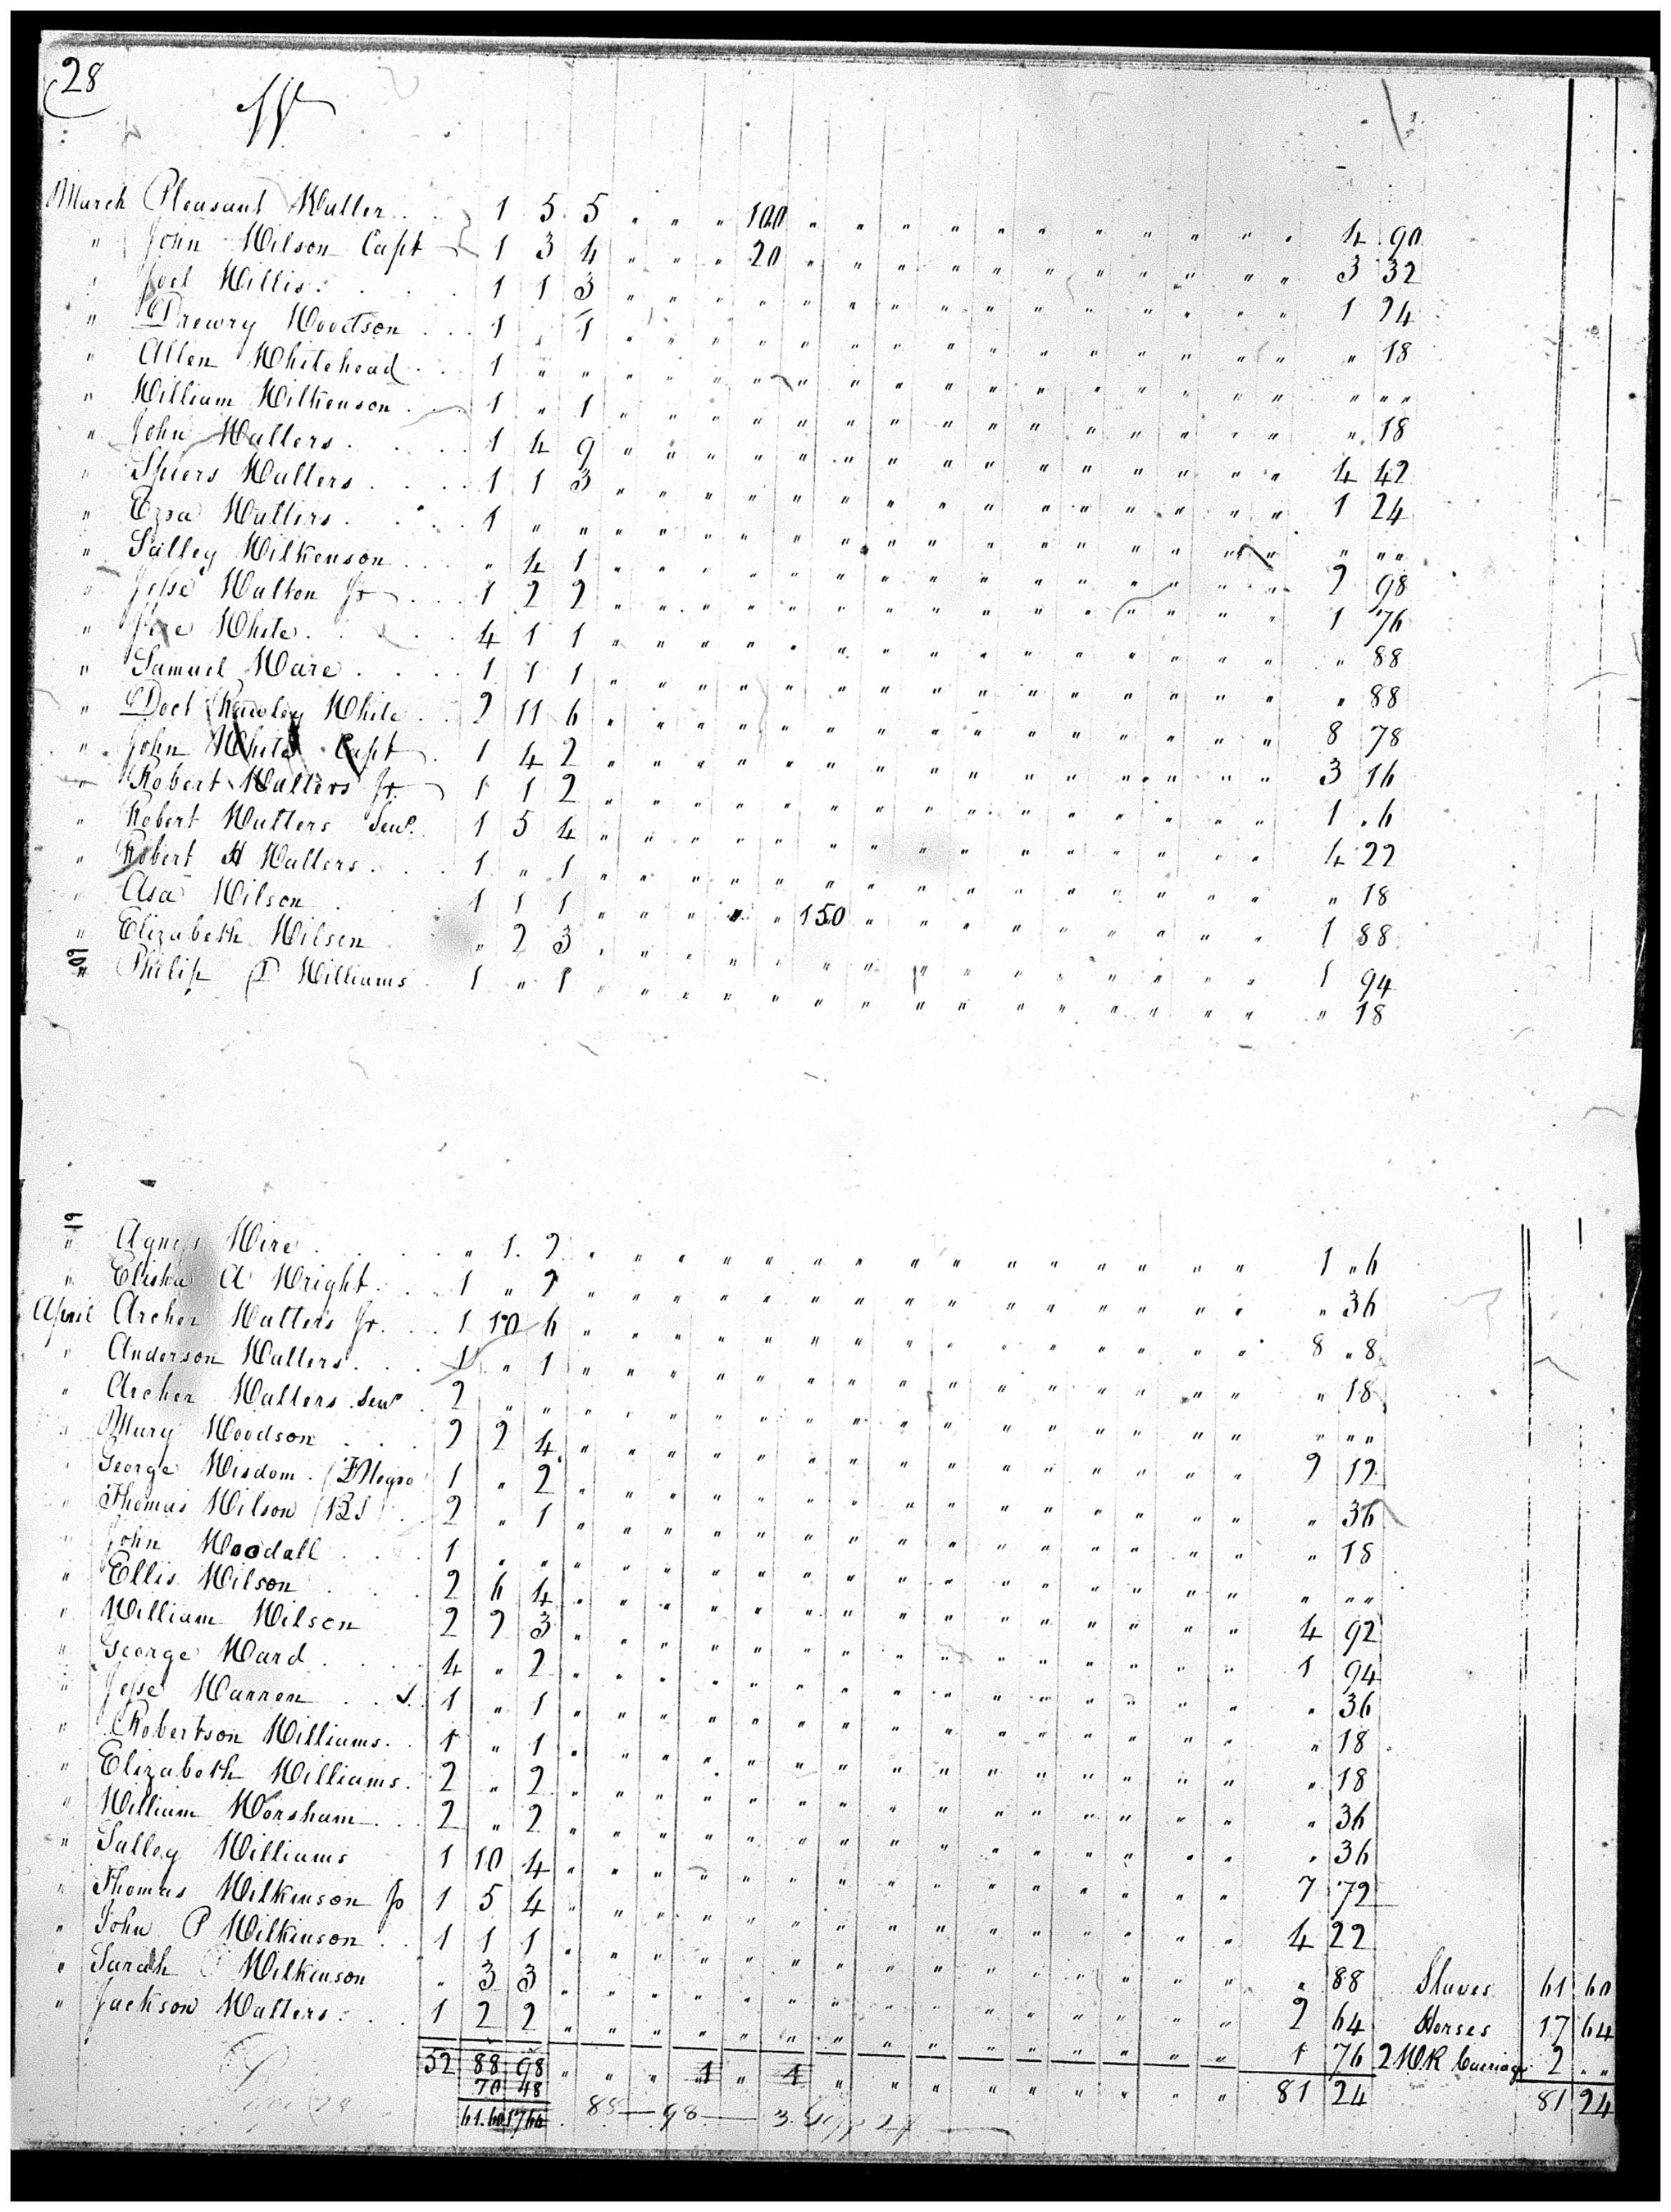 28
W
March Pleasant Waller . . 1 5 5 " " " 100 " " " " " " " " " " " 4 90
" John Wilson Capt 1 3 4 " " " 20 " " " " " " " " " " " 3 32
" Joel Willis . . . 1 1 3 " " " " " " " " " " " " " " " 1 24
" Drewry Woodson . . . 1 " 1 " " " " " " " " " " " " " " " " 18
" Allen Whitehead . . 1 " " " " " " " " " " " " " " " " " " " "
" William Wilkenson . . 1 " 1 " " " " " " " " " " " " " " " " 18
" John Walters . . . 1 4 9 " " " " " " " " " " " " " " " 4 42
" Spiers Walters . . . 1 1 3 " " " " " " " " " " " " " " " 1 24
" Ezra Walters . . . 1 " " " " " " " " " " " " " " " " " " " "
" Salley Wilkenson . . . " 4 1 " " " " " " " " " " " " " " " 2 98
" Jesse Walton Jr . . 1 2 2 " " " " " " " " " " " " " " " 1 76
" Jere White . . . 4 1 1 " " " " " " " " " " " " " " " " 88
" Samuel Ware . . . 1 1 1 " " " " " " " " " " " " " " " " 88
" Doct Rawley White . . 2 11 6 " " " " " " " " " " " " " " " 8 78
" John White Capt . 1 4 2 " " " " " " " " " " " " " " " 3 16
" Robert Walters Jr. 1 1 2 " " " " " " " " " " " " " " " 1 " 6
" Robert Walters Senr. 1 5 4 " " " " " " " " " " " " " " " 4 22
" Robert H Walters . . . 1 " 1 " " " " " " " " " " " " " " " " 18
" Asa Wilson . . . 1 1 1 " " " " " 150 " " " " " " " " " 1 88
" Elizabeth Wilson " 2 3 " " " " " " " " " " " " " " " 1 94
19 " Philip P Williams 1 " 1 " " " " " " " " " " " " " " " " 18
19 " Agness Wire . . . " 1 2 " " " " " " " " " " " " " " " 1 " 6
" Elisha A Wright . . 1 " 2 " " " " " " " " " " " " " " " " 36
April Archer Walters Jr. . . 1 10 6 " " " " " " " " " " " " " " " 8 " 8
" Anderson Walters . . . 1 " 1 " " " " " " " " " " " " " " " " 18
" Archer Walters Senr . 2 " " " " " " " " " " " " " " " " " " " "
" Mary Woodson . . . 2 2 4 " " " " " " " " " " " " " " " 2 12
" George Wisdom (F Negro 1 " 2 " " " " " " " " " " " " " " " " 36
" Thomas Wilson (BS) . . 2 " 1 " " " " " " " " " " " " " " " " 18
" John Woodall . . . 1 " " " " " " " " " " " " " " " " " " " "
" Ellis Wilson . . . 2 6 4 " " " " " " " " " " " " " " " 4 92
" William Wilson 2 2 3 " " " " " " " " " " " " " " " 1 94
" George Ward . . . 4 " 2 " " " " " " " " " " " " " " " " 36
" Jesse Warren . . 1 " 1 " " " " " " " " " " " " " " " " 18
" Robertson Williams . . 1 " 1 " " " " " " " " " " " " " " " " 18
" Elizabeth Williams . 2 " 2 " " " " " " " " " " " " " " " " 36
" William Worsham . . 2 " 2 " " " " " " " " " " " " " " " " 36
" Salley Williams 1 10 4 " " " " " " " " " " " " " " " 7 72
" Thomas Wilkinson Jr 1 5 4 " " " " " " " " " " " " " " " 4 22
" John P Wilkinson . . 1 1 1 " " " " " " " " " " " " " " " " 88
" Sarah Wilkinson " 3 3 " " " " " " " " " " " " " " " 2 64 Slaves 61 60
" Jackson Walters . . . 1 2 2 " " " " " " " " " " " " " " " 1 76 Horses 17 64
2 W R Carriage 2 " "
52 88 98 " " " 1 " 1 " " " " " " " " " 81 24 81 24
70 48
61.60 17 64 88 98 3